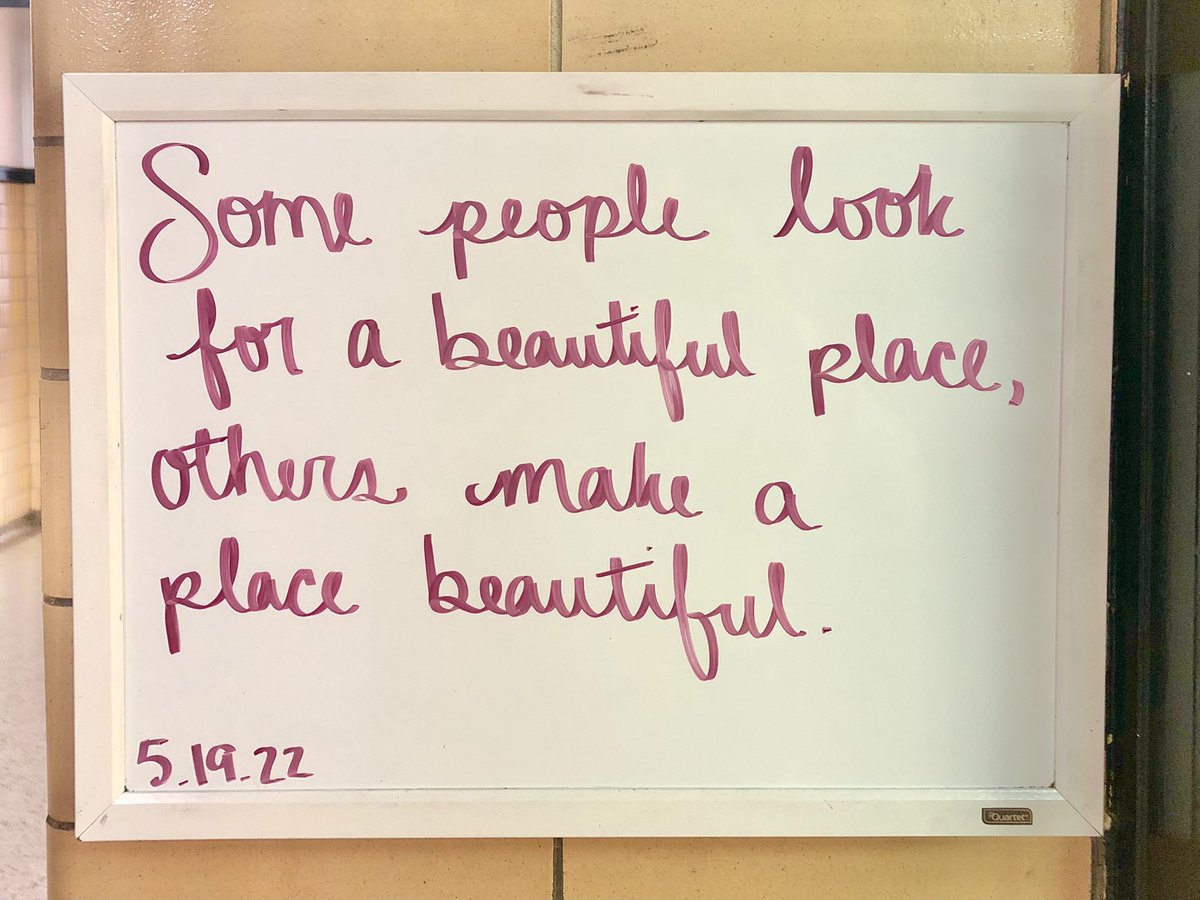 Some people look
for a beautiful place,
others make a
place beautiful.
5.19.22
Quartet